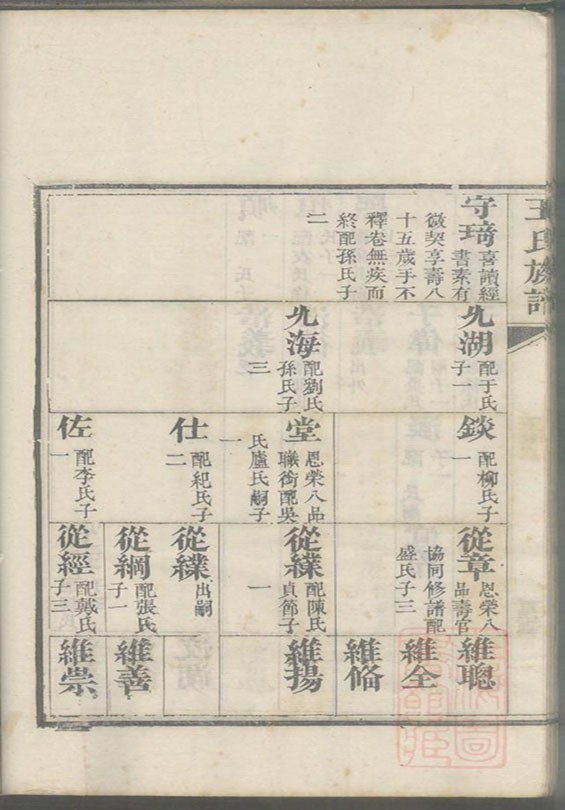 王氏族譜
守琦
喜讀經
書素有
微契享壽八
十五歲手不
釋卷無疾而
終配孫氏子
二
湖
配于氏
子一
海
配劉氏
孫氏子
三
錟
配柳氏子
一
堂
恩榮八品
職銜配吳
氏廬氏嗣子
一
仕
配紀氏子
二
佐
配李氏子
一
從章
恩榮八
品壽官
協同修譜配
盛氏子三
從
配陳氏
貞節子
一
從
出嗣
從綱
配張氏
子一
從經
配戴氏
子三
維聰
維全
維脩
維揚
維善
維崇